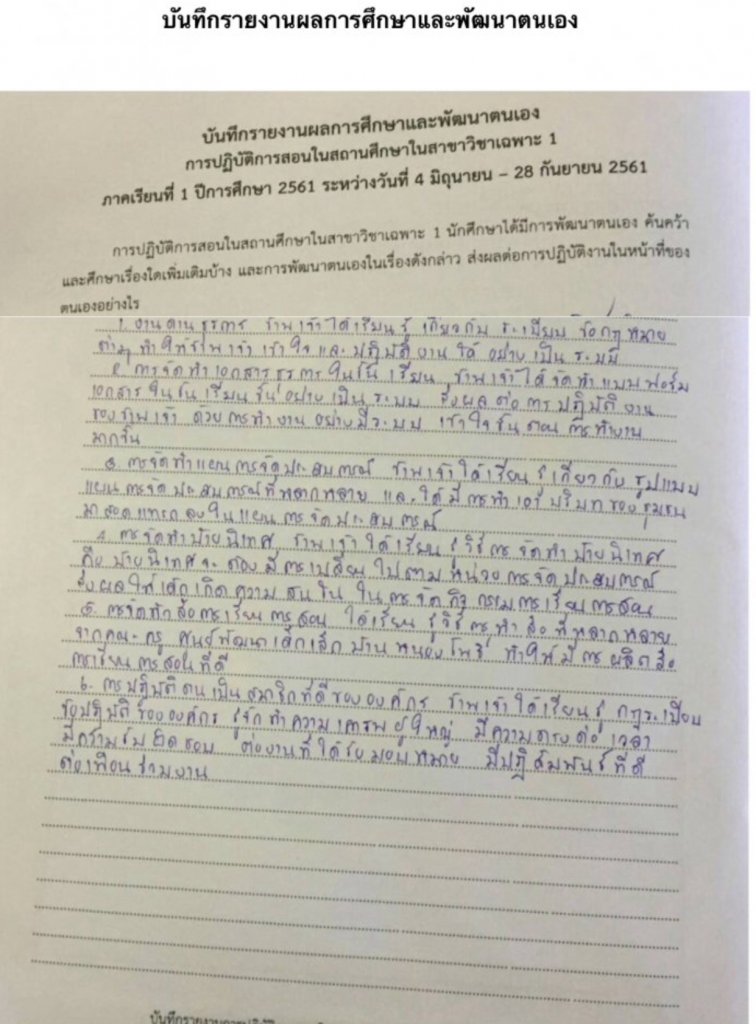 บันทึกรายงานผลการศึกษาและพัฒนาตนเอง
บันทึกรายงานผลการศึกษาและพัฒนาตนเอง
การปฏิบัติการสอนในสถานศึกษาในสาขาวิชาเฉพาะ 1
ภาคเรียนที่ 1 ปีการศึกษา 2561 ระหว่างวันที่ 4 มิถุนายน – 28 กันยายน 2561
การปฏิบัติการสอนในสถานศึกษาในสาขาวิชาเฉพาะ 1 นักศึกษาได้มีการพัฒนาตนเอง ค้นคว้า
และศึกษาเรื่องใดเพิ่มเติมบ้าง และการพัฒนาตนเองในเรื่องดังกล่าว ส่งผลต่อการปฏิบัติงานในหน้าที่ของ
ตนเองอย่างไร
1. งานด้านธุรการ ข้าพเจ้าได้เรียนรู้ เกี่ยวกับ ระเบียบ ข้อกฎหมาย
ต่างๆ ทำให้ข้าพเจ้า เข้าใจและปฏิบัติงานได้ อย่างเป็น
2. การจัดทำเอกสารธุรการในชั้นเรียน ข้าพเจ้าได้จัดทำแบบฟอร์ม
เอกสารในชั้นเรียนขึ้นอย่างเป็นระบบ ส่งผลต่อการปฏิบัติงาน
ของข้าพเจ้า ด้วยการทำงานอย่างมีระบบ เข้าใจขั้นตอนการทำงาน
มากขึ้น
3. การจัดทำแผนการจัดประสบการณ์ ข้าพเจ้าได้เรียนรู้เกี่ยวกับรูปแบบ
แผนการจัดประสบการณ์ที่หลากหลาย และได้มีการทำเอาบริบทของชุมชน
มาสอดแทรกลงในแผนการจัดประสบการณ์
4. การจัดทำป้ายนิเทศ ข้าพเจ้าได้เรียนรู้วิธีการจัดทำป้ายนิเทศ
คือ ป้ายนิเทศจะต้องมีการเปลี่ยนไปตามหน่วยการจัดประสบการณ์
ส่งผลให้เด็กเกิดความสนใจในการจัดกิจกรรมการเรียนการสอน
5. การจัดทำสื่อการเรียนการสอน ได้เรียนรู้วิธีการทำสื่อที่หลากหลาย
จากคณะครู ศูนย์พัฒนาเด็กเล็กบ้านหนองโพธิ์ ทำให้มีการผลิตสื่อ
การเรียนการสอนที่ดี
6. การปฏิบัติตนเป็นสมาชิกที่ดีขององค์กร ข้าพเจ้าได้เรียนรู้ กฎระเบียบ
ข้อปฏิบัติขององค์กร รู้จักทำความเคารพผู้ใหญ่ มีความตรงต่อเวลา
มีความรับผิดชอบ ต่องานที่ได้รับมอบหมาย มีปฏิสัมพันธ์ที่ดี
ต่อเพื่อนร่วมงาน